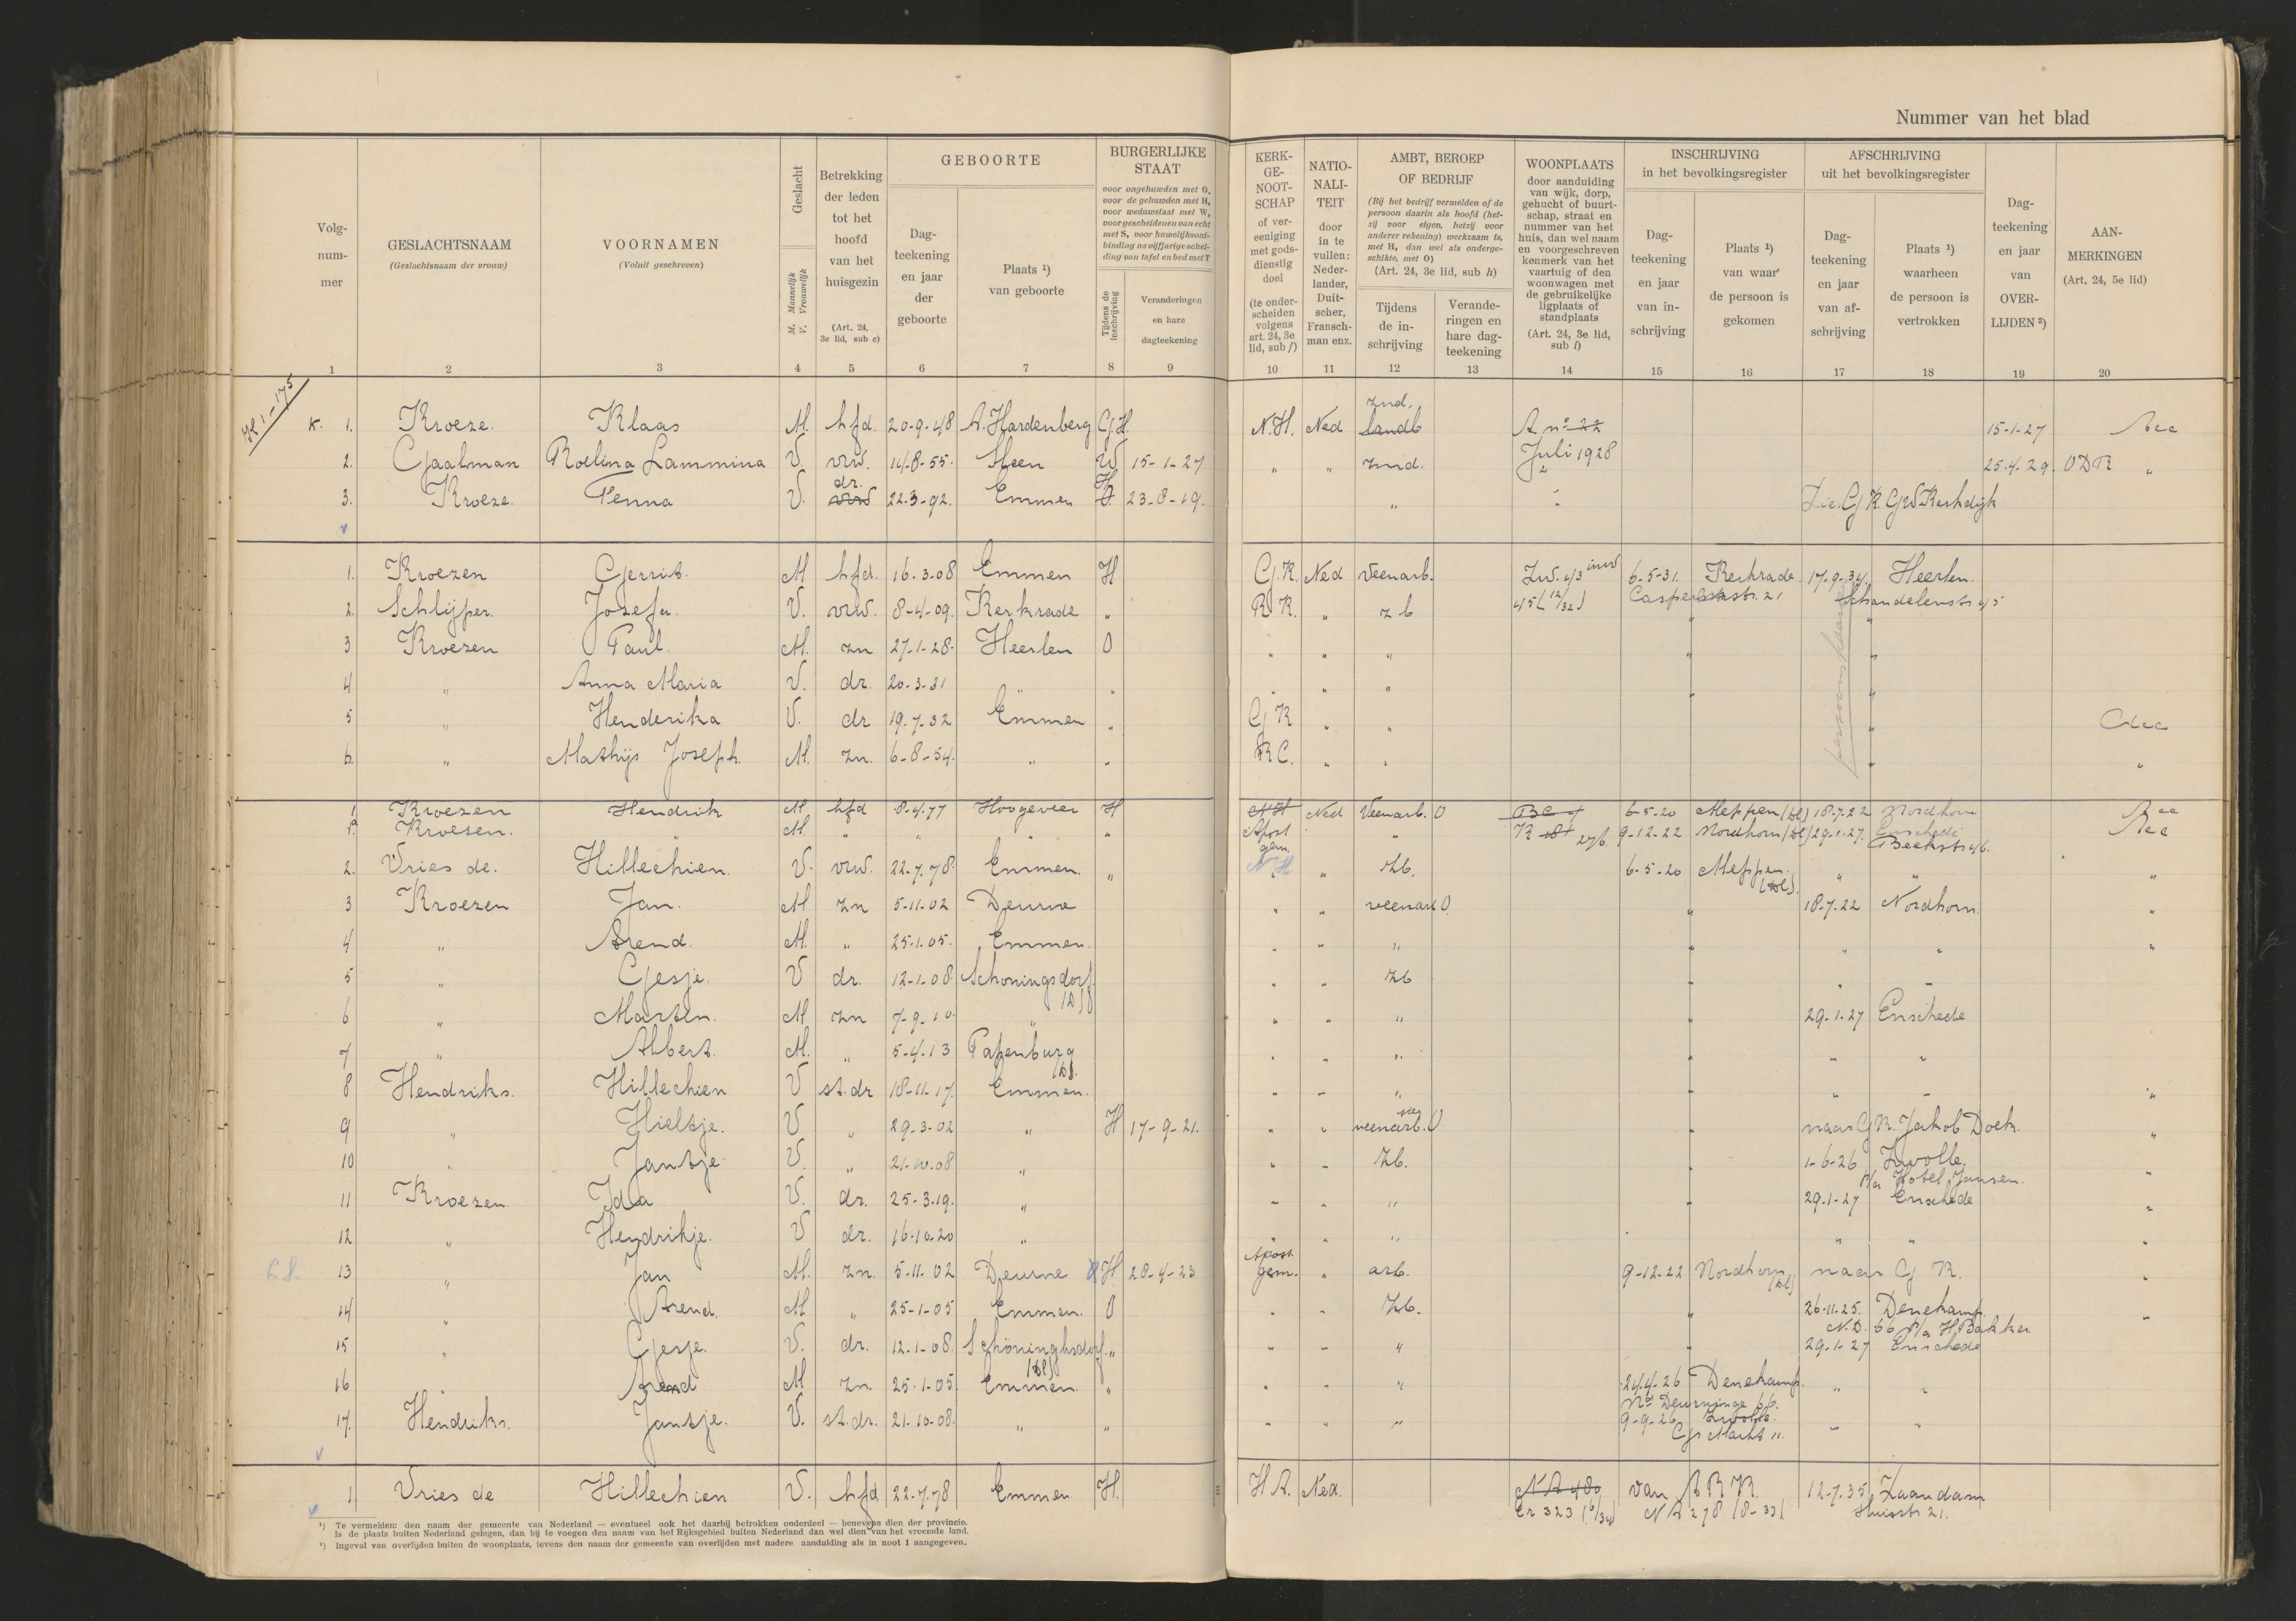 Nummer van het blad
Volgnummer
GESLACHTSNAAM
(Geslachtsnaam der vrouw)
VOORNAMEN
(Voluit geschreven)
Geslacht
M. Mannelijk
V. Vrouwelijk
Betrekking der leden tot het hoofd van het huisgezin
(Art. 24, 3e lid, sub c)
GEBOORTE
Dagteekening en jaar der geboorte
Plaats ¹) van geboorte
BURGERLIJKE STAAT
voor ongehuwden met O, voor de gehuwden met H, voor weduwstaat met W, voor gescheidenen van echt met S, voor huwelijksontbinding na vijfjarige scheiding van tafel en bed met T
Tijdens de inschrijving
Veranderingen en hare dagteekening
KERKGENOOTSCHAP
of vereeniging met godsdienstig doel
(te onderscheiden volgens art. 24, 3e lid, sub f)
NATIONALITEIT
door in te vullen: Nederlander, Duitscher, Franschman enz.
AMBT, BEROEP OF BEDRIJF
(Bij het bedrijf vermelden of de persoon daarin als hoofd (hetzij voor eigen, hetzij voor anderer rekening) werkzaam is, met H, dan wel als ondergeschikte, met O)
(Art. 24, 3e lid, sub h)
Tijdens de inschrijving
Veranderingen en hare dagteekening
WOONPLAATS
door aanduiding van wijk, dorp, gehucht of buurtschap, straat en nummer van het huis, dan wel naam en voorgeschreven kenmerk van het vaartuig of den woonwagen met de gebruikelijke ligplaats of standplaats
(Art. 24, 3e lid, sub i)
INSCHRIJVING
in het bevolkingsregister
Dagteekening en jaar van inschrijving
Plaats ¹) van waar de persoon is gekomen
AFSCHRIJVING
uit het bevolkingsregister
Dagteekening en jaar van afschrijving
Plaats ¹) waarheen de persoon is vertrokken
Dagteekening en jaar van OVERLIJDEN ²)
AANMERKINGEN
(Art. 24, 5e lid)
1 2 3 4 5 6 7 8 9 10 11 12 13 14 15 16 17 18 19 20
K 1-175
K. 1. Kroeze. Klaas M. hfd. 20-9-48 A. Hardenberg H. N.H. Ned znd. landb A no 22 15-1-27 Acc
2. Gaalman Roelina Lammina V. vrw. 14-8-55. Sleen W 15-1-27 " " znd. Juli 1928 25.4.29. ODR "
3. Kroeze. Fenna V. dr. vrw 22-3-92. Emmen H 23-8-19. " Zie. G.K. GW Kerkdijk
1. Kroezen Gerrit. M hfd. 16-3-08 Emmen H G.K. Ned Veenarb. Zw. 43 inw 6-5-31. Kerkrade 17-9-34. Heerlen.
2. Schlijper. Josefa. V. vrw. 8-4-09. Kerkrade " R K. " zb 45 (12/32) str. 21 Schandelenstr 45
3 Kroezen Paul. M. zn 27-1-28. Heerlen O " " " " "
4 " Anna Maria V. dr. 20-3-31 " " " " " " "
5 " Henderika V. dr 19.7.32 Emmen " G K " " " Acc
6. " Mathijs Joseph. M. zn. 6-8-34. " " RC. " " " "
persoonskaart
1 Kroezen Hendrik M hfd 8-4-77 Hoogeveen H N H Ned Veenarb. O 6-5-20 Meppen (Dl) 18-7-22 Nordhorn Acc
1a. Kroesen. " M. " " " " Apost gem. " K 181 276. 9-12-22 Nordhorn (Dl) 29-1-27. Enschede Beekstr 46. Acc
2. Vries de. Hillechien. V. vrw. 22-7-78. Emmen. " N H " zb. 6-5-20 Meppen. (Dl) " " "
3 Kroezen Jan. M zn 5-11-02 Deurne " " veenarb O. " 18-7-22 Nordhorn. "
4 " Arend. M. " 25-1-05. Emmen. " " " " " " "
5 " Gesje. V dr. 12-1-08 Schoningsdorf (Dl) " " zb " " "
6 " Marten. M zn 7-9-10. " " " " " 29-1-27 Enschede
7 " Albert. M. " 5-4-13 Papenburg (Dl). " " " " " "
8 Hendriks. Hillechien V st.dr 18-11-17. Emmen. " " " " " " "
9 " Hieltje. V " 29-3-02 " H 17-9-21. " " veenarb. O " naar G.K. Jakob Doek. "
10 " Jantje V. " 21-10-08 " " " zb. " 1-6-26 Zwolle. p/a Hotel Jansen. "
11 Kroezen. Ida V. dr. 25-3-19. " " " " " 29-1-27 Enschede "
12 " Hendrikje. V dr. 16-10-20 " " " " " " "
13 " Jan M. zn. 5-11-02 Deurne H 28-4-23 Apost gem. " arb. 9-12-22 Nordhorn (Dl) naar G K. "
14 " Arend. M " 25-1-05 Emmen. O " " zb. " 26-11-25. Denekamp. N.D. 66 p/a H. Bakker "
15 " Gesje. V. dr. 12-1-08. Schöninghsdorf (Dl) " " " " " 29-1-27 Enschede
16 " Arend M zn. 25-1-05 Emmen. " " " " 24-4-26 Denekamp. Nd Deurninge 66. " "
17. Hendriks. Jantje. V. st.dr. 21-10-08. " " " " " 9-9-26 Zwolle. Gr Markt 11. " "
1 Vries de Hillechien V. hfd 22-7-78 Emmen H. H.A. Ned. N A 480 van A R K. 12-7-35 Zaandam
Er 323 (6/34) N A 278 (8-33) Huisstr 21.
¹) Te vermelden: den naam der gemeente van Nederland — eventueel ook het daarbij betrokken onderdeel — benevens dien der provincie.
Is de plaats buiten Nederland gelegen, dan bij te voegen den naam van het Rijksgebied buiten Nederland dan wel dien van het vreemde land.
²) Ingeval van overlijden buiten de woonplaats, tevens den naam der gemeente van overlijden met nadere aanduiding als in noot 1 aangegeven.